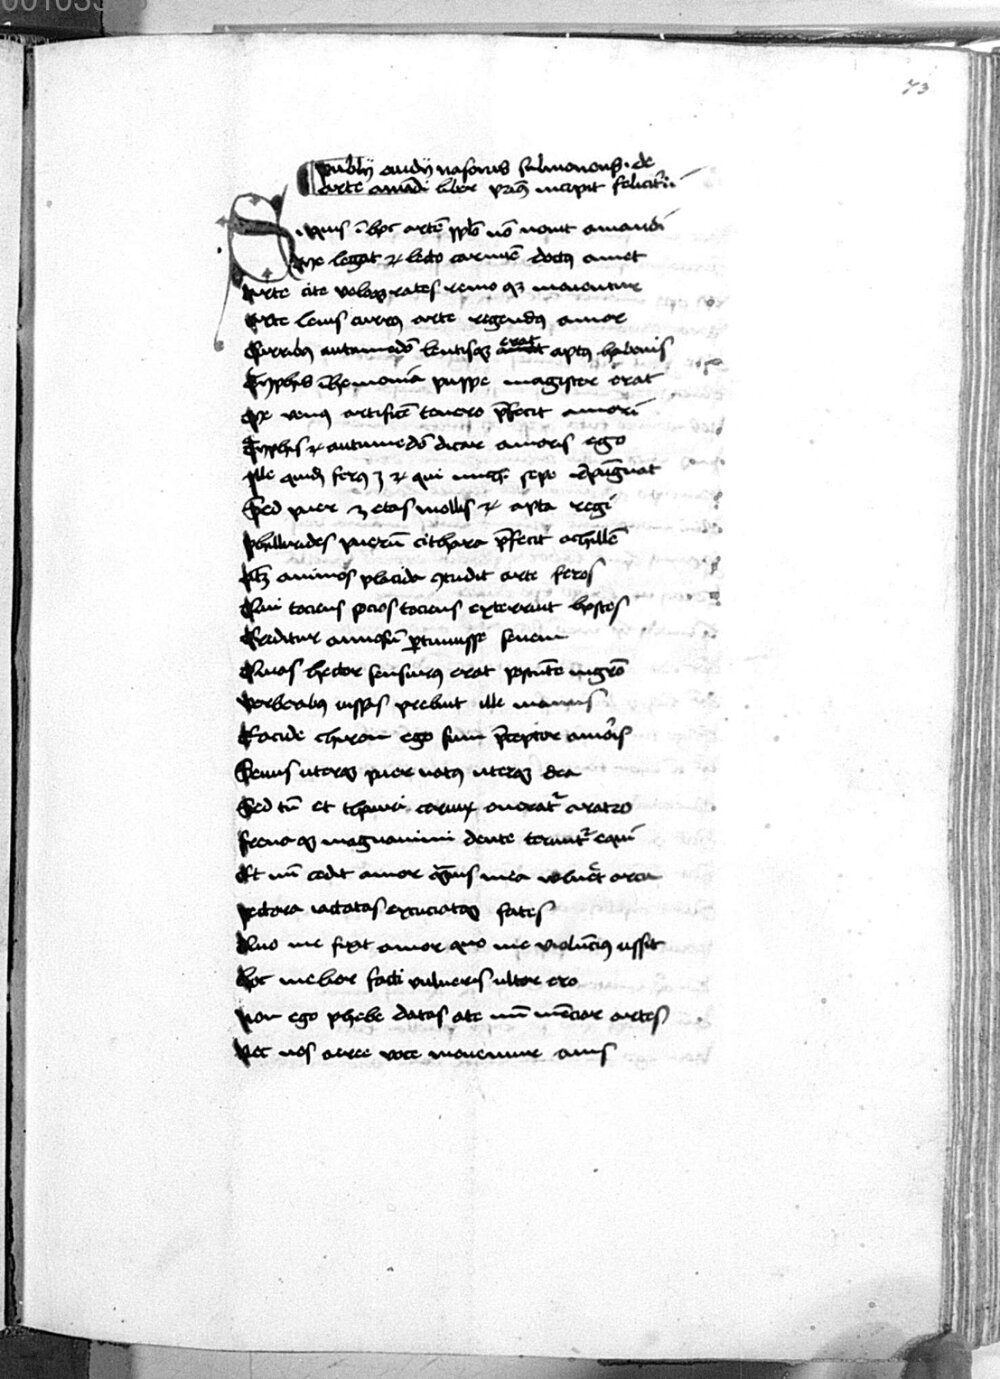 73
publij ouidij nasonis sulmonens. de
arte amādi liber prīꝯ incipit felicit̉
Siquis ī hoc artē pp̄lo nō nouit amandi
Me legat ⁊ lecto carmīe doctꝯ amet
Arte cite veloqꝫ rates remo qꝫ mouentur
Arte leuis currꝯ arte regendꝯ amor
Curribꝯ autumedō lentisqꝫ erat aptꝯ habenis
Typhis ī hemonia puppe magister erat
Me venꝯ artificē tenero p̄fecit amori
Typhis ⁊ autumedō dicar amoris ego
Ille quidē ferꝯ ⁊ qui michi sepe repūgnat
Sed puer ⁊ etas mollis ⁊ apta regi
Phillirides puerū cithara p̄fecit achillē
Atqꝫ animos placida ꝯtudit arte feros
Qui tociens socios tociens exterruit hostes
Creditur annosū ꝑtimuisse senem
Quas hector sensurꝯ erat poscēte mgrō
Verberibꝯ iussas prebuit ille manus
Eacide chiron ego sum p̄ceptor amoris
Seuus uterqꝫ puer natꝯ uterqꝫ dea
Sed tn̄ et thauri ceruix onerat̉ aratro
Frena qꝫ magnanimi dente terunt̉ equi
Et m̄ cedit amor q̄uis mea vulneret arcu
Pectora iactatas excuciatqꝫ faces
Quo me fixit amor quo me violēciꝯ ussit
Hoc melior facti vulneris ultor ero
Non ego phebe datas a te m̄ mēciar artes
Nec nos aeree voce mouemur auis